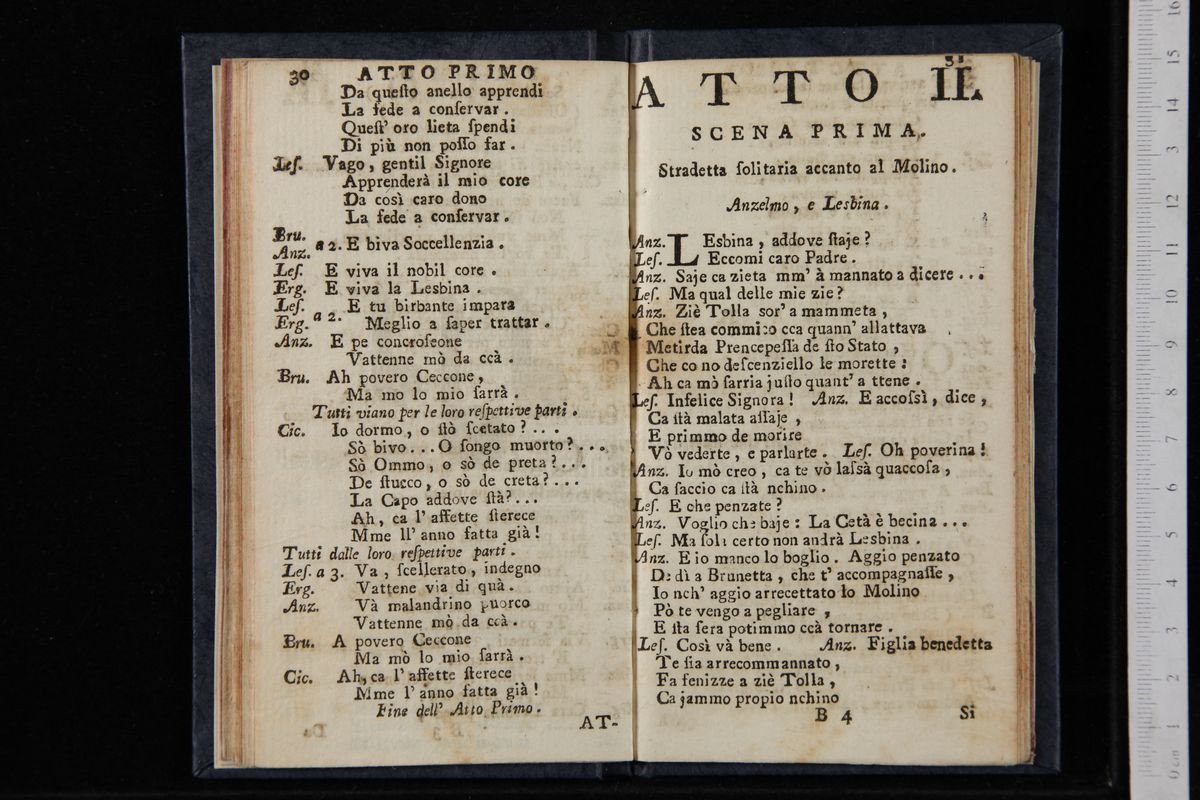 30 ATTO PRIMO
Da queſto anello apprendi
La fede a conſervar.
Queſt' oro lieta ſpendi
Di più non poſſo far.
Leſ. Vago, gentil Signore
Apprenderà il mio core
Da così caro dono
La fede a conſervar.
Bru.
Anz. a 2. E biva Soccellenzia.
Leſ. E viva il nobil core.
Erg. E viva la Lesbina.
Leſ. a 2. E tu birbante impara
Erg. Meglio a ſaper trattar.
Anz. E pe concroſeone
Vattenne mò da ccà.
Bru. Ah povero Ceccone,
Ma mo lo mio ſarrà.
Tutti viano per le loro reſpettive parti.
Cic. Io dormo, o ſtò ſcetato?...
Sò bivo... O ſongo muorto?...
Sò Ommo, o sò de preta?...
De ſtucco, o sò de creta?...
La Capo addove ſtà?...
Ah, ca l' affette ſterece
Mme ll' anno fatta già!
Tutti dalle loro reſpettive parti.
Leſ. a 3. Va, ſcellerato, indegno
Erg. Vattene via di quà.
Anz. Và malandrino puorco
Vattenne mò da ccà.
Bru. A povero Ceccone
Ma mò lo mio ſarrà.
Cic. Ah, ca l' affette ſterece
Mme l' anno fatta già!
Fine dell' Atto Primo.
AT-
31
ATTO II.
SCENA PRIMA.
Stradetta ſolitaria accanto al Molino.
Anzelmo, e Lesbina.
Anz. LEsbina, addove ſtaje?
Leſ. Eccomi caro Padre.
Anz. Saje ca zieta mm' à mannato a dicere...
Leſ. Ma qual delle mie zie?
Anz. Ziè Tolla sor' a mammeta,
Che ſtea commico cca quann' allattava
Metirda Prencepeſſa de ſto Stato,
Che co no deſcenziello le morette:
Ah ca mò ſarria juſto quant' a ttene.
Leſ. Infelice Signora! Anz. E accoſsì, dice,
Ca ſtà malata aſſaje,
E primmo de morire
Vò vederte, e parlarte. Leſ. Oh poverina!
Anz. Io mò creo, ca te vò laſsà quaccoſa,
Ca faccio ca ſtà nchino.
Leſ. E che penzate?
Anz. Voglio che baje: La Cetà è becina...
Leſ. Ma ſola certo non andrà Lesbina.
Anz. E io manco lo boglio. Aggio penzato
De dì a Brunetta, che t' accompagnaſſe,
Io nch' aggio arrecettato lo Molino
Pò te vengo a pegliare,
E ſta ſera potimmo ccà tornare.
Leſ. Così và bene. Anz. Figlia benedetta
Te ſia arrecommannato,
Fa fenizze a ziè Tolla,
Ca jammo propio nchino
B 4 Si
16
15
14
13
12
11
10
9
8
7
6
5
4
3
2
1
0 cm